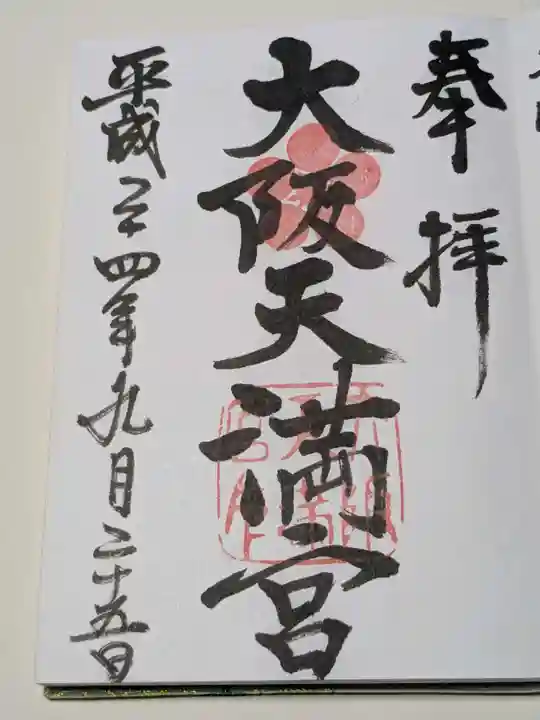 奉拝
大阪天満宮
平成二十四年九月二十五日